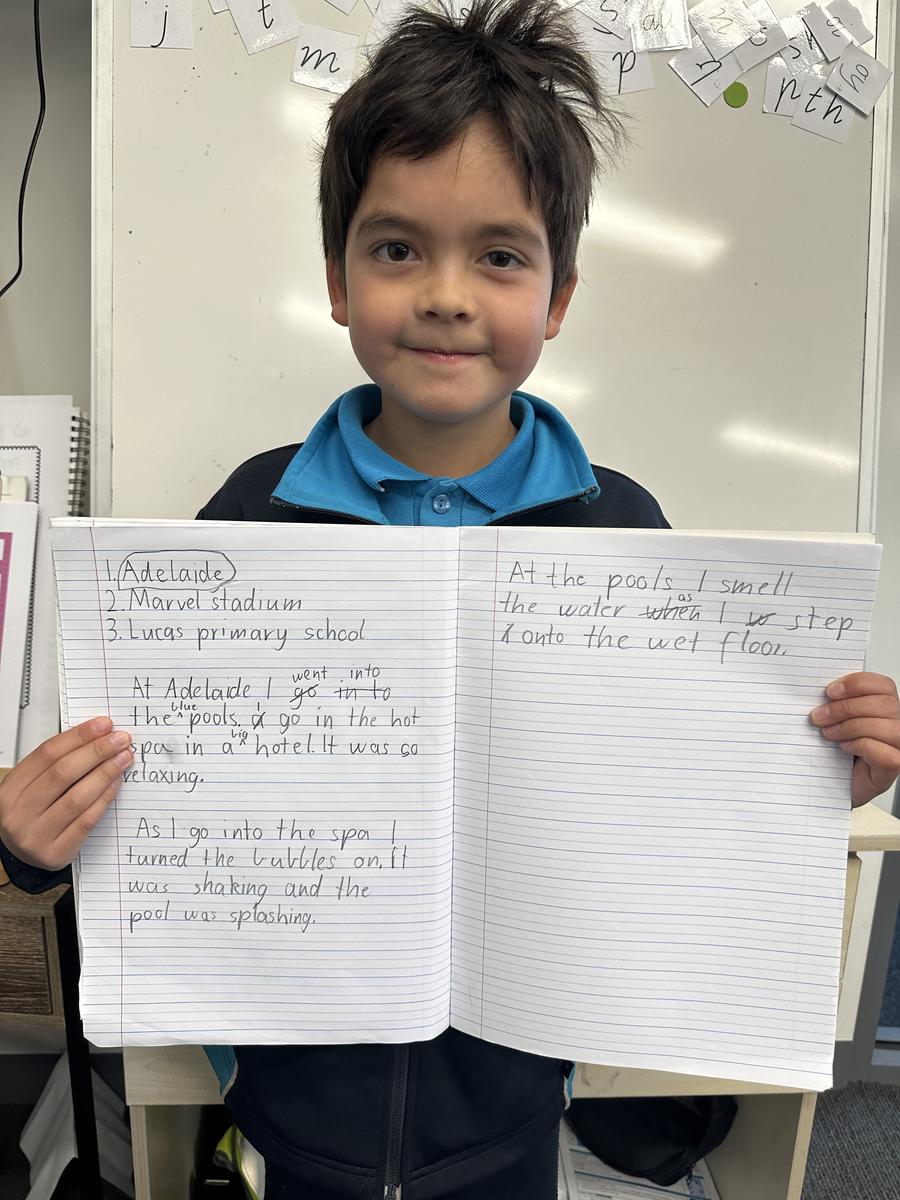 j t m p r n th ay
1. Adelaide
2. Marvel stadium
3. Lucas primary school
At Adelaide I go went in to into
the blue pools. I go in the hot
spa in a big hotel. It was so
relaxing.
As I go into the spa I
turned the bubbles on. It
was shaking and the
pool was splashing.
At the pools I smell
the water when as I w step
I onto the wet floor.